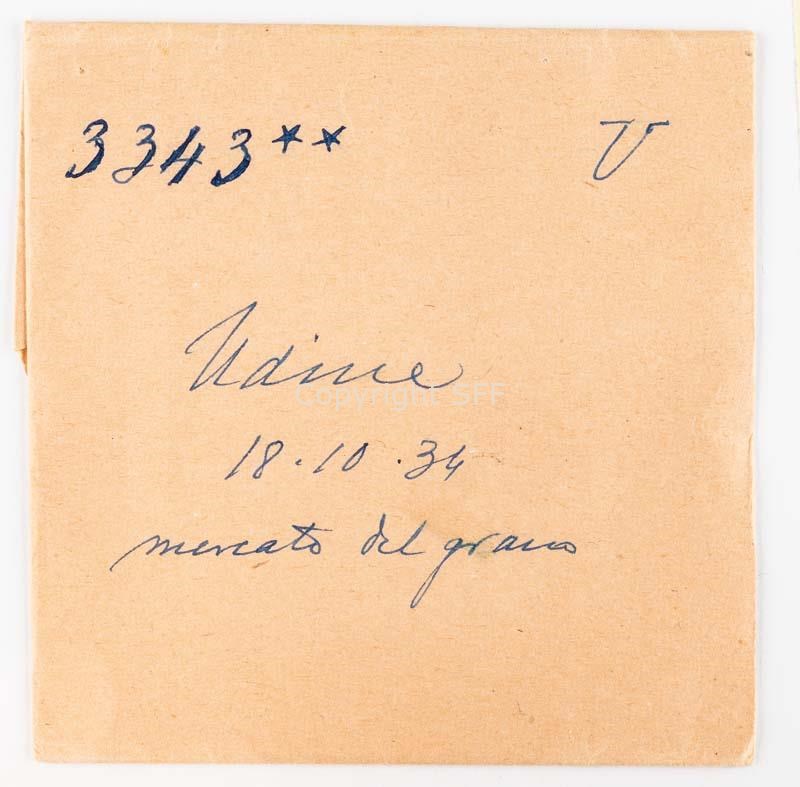 3343** V
Udine
Copyright SFF
18.10.34
mercato del grano